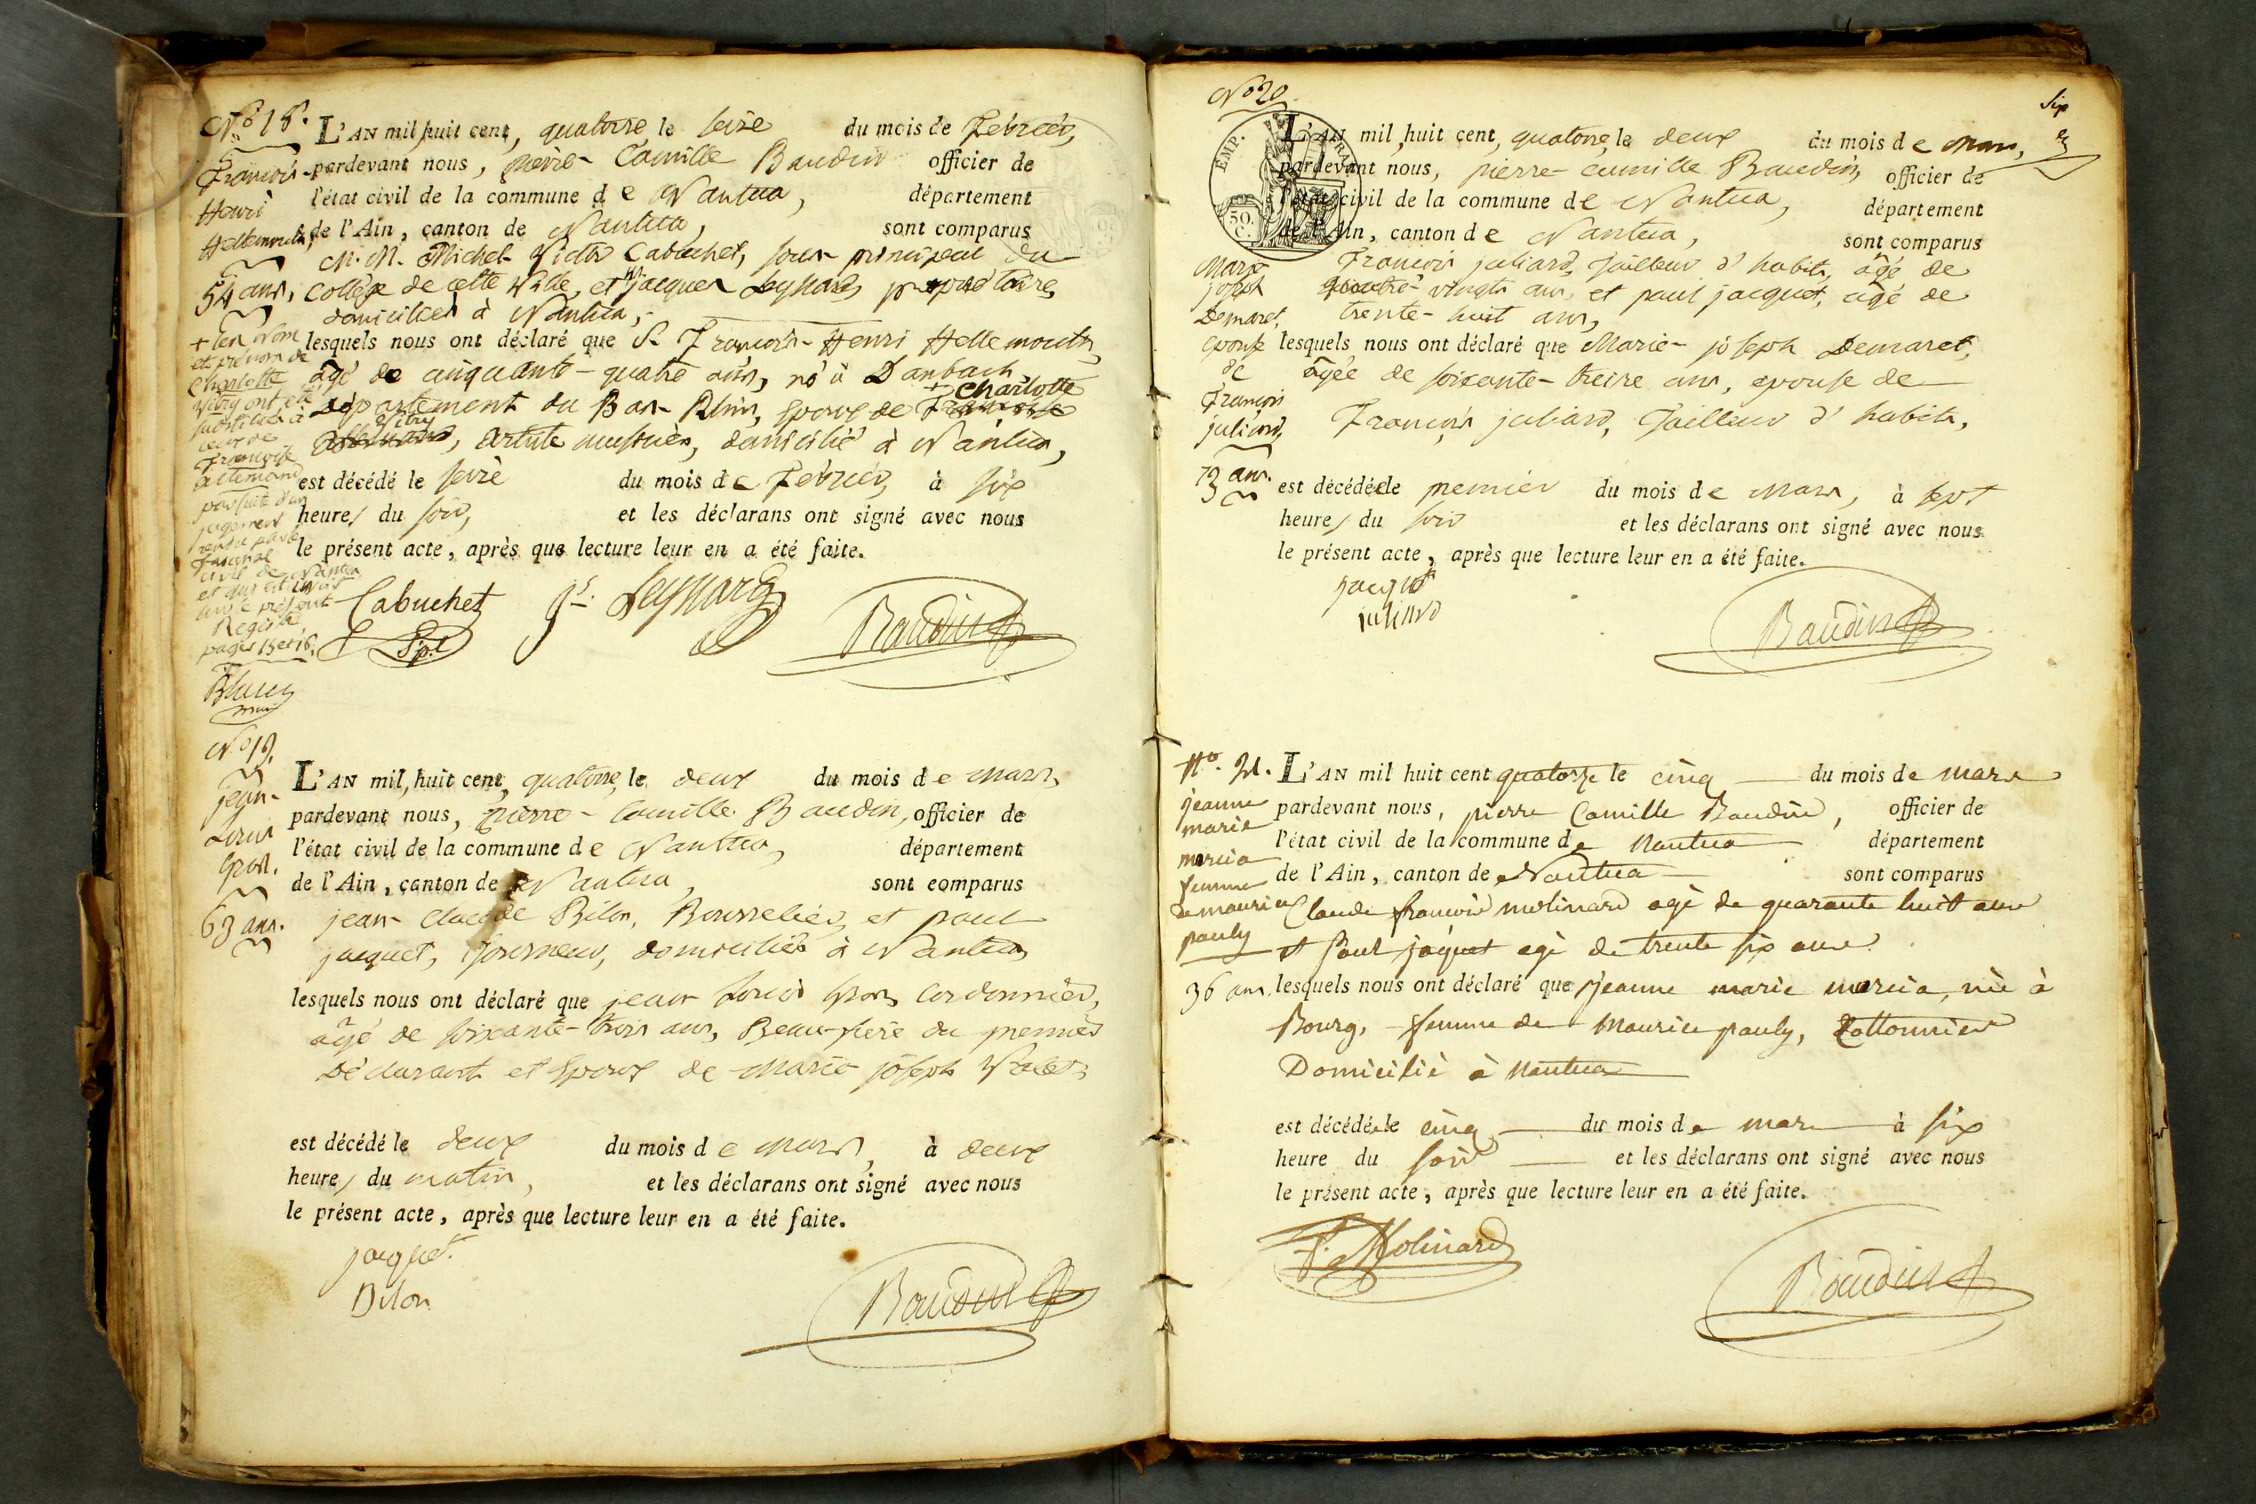 N.º 18.
François-
Henri
Hellemouth,
54 ans,
+ les nom
et prénom de
Charlotte
Vitry ont été
substitués à
ceux de
Françoise
allemand
par suite d'un
jugement
rendu par le
tribunal
civil de Nantua
et qui est inscrit
sur le présent
Registre
pages 15 et 16.
L'AN mil huit cent, quatorze le seize du mois de Février,
pardevant nous, pierre-Camille Baudin officier de
l'état civil de la commune de Nantua, département
de l'Ain, canton de Nantua, sont comparus
M. M. Michel-Victor Cabuchet, sous-principal du
Collège de cette Ville, et jacques Leyssard, propriétaire,
domiciliés à Nantua,
lesquels nous ont déclaré que S. François-Henri Hellemouth,
âgé de cinquante-quatre ans, né à Danbach
+ Charlotte
Département du Bas-Rhin, Epoux de Françoise
Vitry
allemand, artiste musicien, domicilié à Nantua,
est décédé le seize du mois de Février, à six
heures du soir, et les déclarans ont signé avec nous
le présent acte, après que lecture leur en a été faite.
Cabuchet
S. p.l
js. Leyssard
Baudin
N.º 19.
jean-
Louis
63 ans.
L'AN mil huit cent, quatorze, le deux du mois de Mars,
pardevant nous, pierre-Camille Baudin, officier de
l'état civil de la commune de Nantua, département
de l'Ain, canton de Nantua, sont comparus
jean-Claude Bilon, Bourrelier, et paul
jacquet, Tourneur, domiciliés à Nantua,
lesquels nous ont déclaré que jean-Louis Cordonnier,
âgé de soixante-trois ans, Beau-père du premier
Déclarant et Epoux de Marie-joseph
est décédé le deux du mois de Mars, à deux
heures du matin, et les déclarans ont signé avec nous
le présent acte, après que lecture leur en a été faite.
jacquet.
Bilon
Baudin
N.º 20.
Six
EMP. FRA
50. C.
Marie
joseph
Demaret,
epouse
de
François
juliard,
73 ans.
L'AN mil huit cent, quatorze, le deux du mois de Mars,
pardevant nous, pierre-camille Baudin, officier de
l'état civil de la commune de Nantua, département
de l'Ain, canton de Nantua, sont comparus
François juliard, Tailleur d'habits, âgé de
quatre-vingts ans, et paul jacquet, âgé de
trente-huit ans,
lesquels nous ont déclaré que Marie-joseph Demaret,
âgée de soixante-treize ans, epouse de
François juliard, Tailleur d'habits,
est décédée le premier du mois de Mars, à sept
heures du soir et les déclarans ont signé avec nous
le présent acte, après que lecture leur en a été faite.
jacquet
juliard
Baudin
N.º 21.
jeanne
marie
femme
de maurice
pauly
36 ans.
L'AN mil huit cent quatorze le cinq du mois de mars
pardevant nous, pierre Camille Baudin, officier de
l'état civil de la commune de Nantua département
de l'Ain, canton de Nantua sont comparus
Claude françois molinard agé de quarante huit ans
et Paul jaquet agé de trente six ans
lesquels nous ont déclaré que jeanne marie née à
Bourg, femme de Maurice pauly, Cottonnier
Domicilié à Nantua
est décédée le cinq du mois de mars à six
heure du soir et les déclarans ont signé avec nous
le présent acte, après que lecture leur en a été faite.
f. Molinard
Baudin